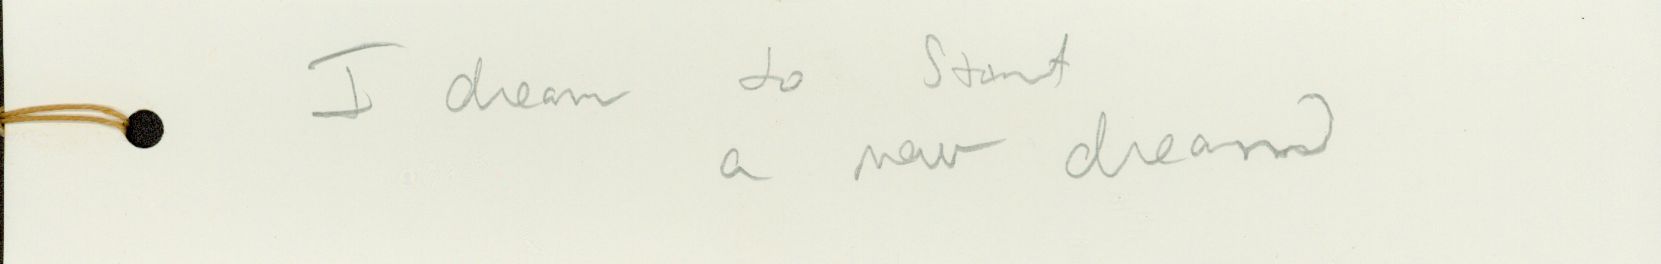 I dream to start
a new dream